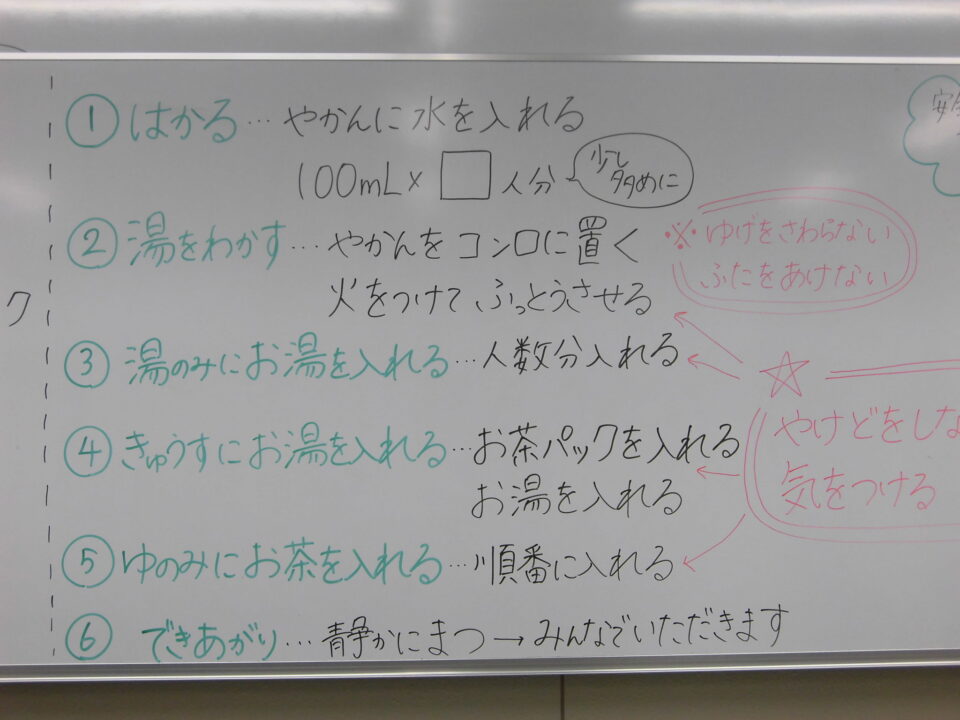 ① はかる … やかんに水を入れる
100mL× □ 人分
少し
多めに
② 湯をわかす … やかんをコンロに置く
火をつけて ふっとうさせる
※ ゆげをさわらない
ふたをあけない
③ 湯のみにお湯を入れる … 人数分入れる
④ きゅうすにお湯を入れる … お茶パックを入れる
お湯を入れる
☆
やけどをしな
気をつける
⑤ ゆのみにお茶を入れる … 順番に入れる
⑥ できあがり … 静かにまつ → みんなでいただきます
ク